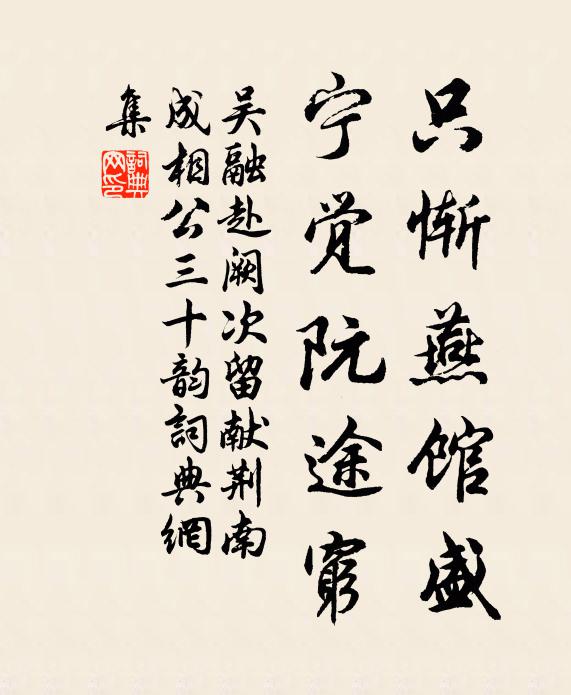 只惭燕馆盛
宁觉阮途窮
吴融赴阙次留献荆南
成相公三十韵詞典網
集
詞典
网印